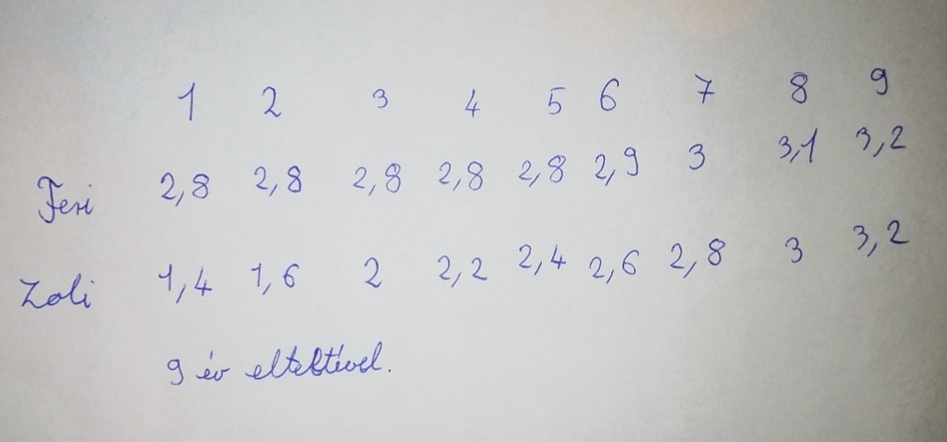 1 2 3 4 5 6 7 8 9
Feri 2,8 2,8 2,8 2,8 2,8 2,9 3 3,1 3,2
Zoli 1,4 1,6 2 2,2 2,4 2,6 2,8 3 3,2
9 év elteltével.